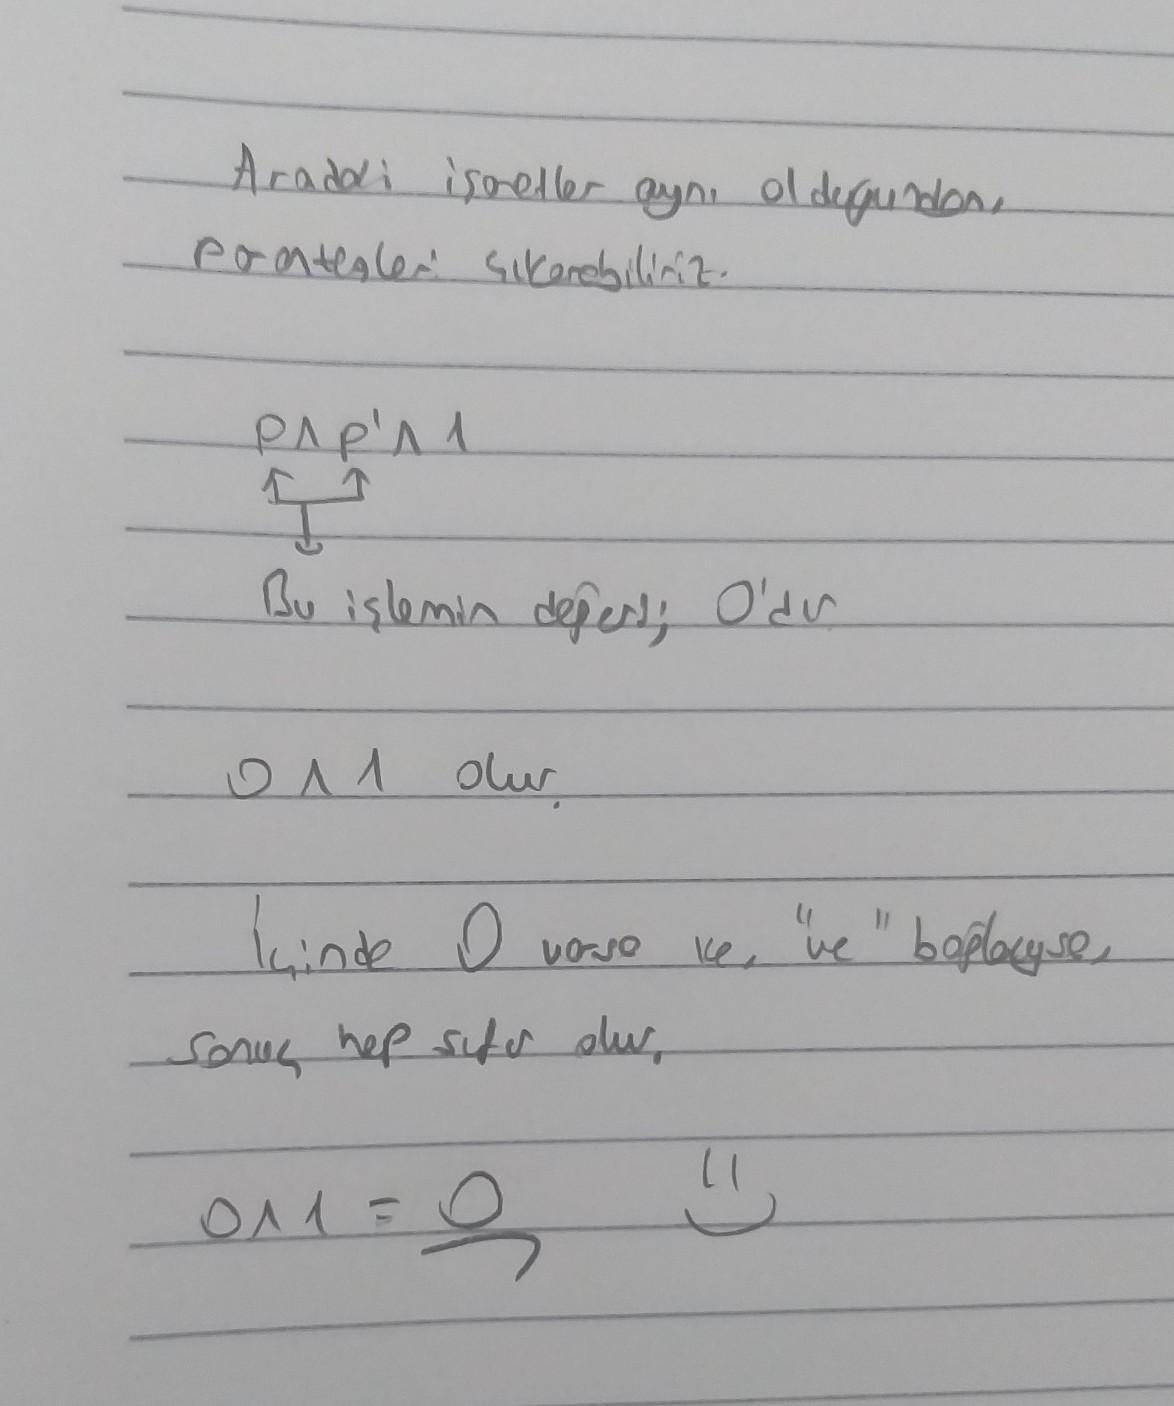 Aradaki işaretler aynı olduğundan,
parantezleri çıkarabiliriz.
p∧p'∧1
Bu işlemin değeri; 0'dır
0∧1 olur.
İçinde 0 varsa ve, "ve" bağlacıysa,
sonuç hep sıfır olur.
0∧1 = 0